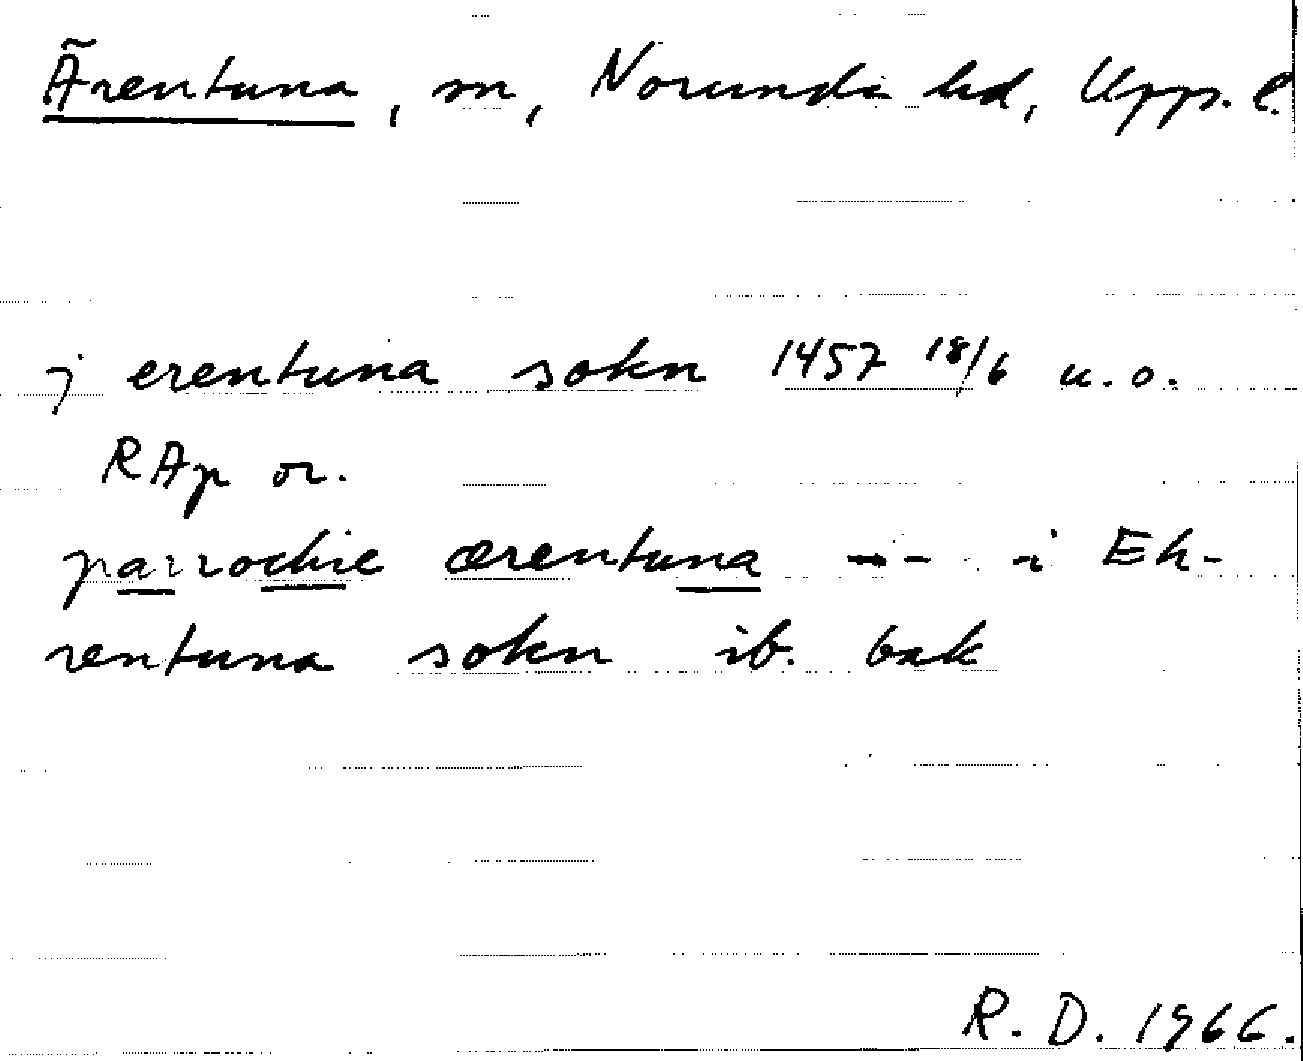 Ärentuna, sn, Norunda hd, Upps. l.
j erentuna sokn 1457 18/6 u.o.
RAp or.
parrochie ærentuna -- i Eh-
rentuna sokn ib. bak
R. D. 1966.